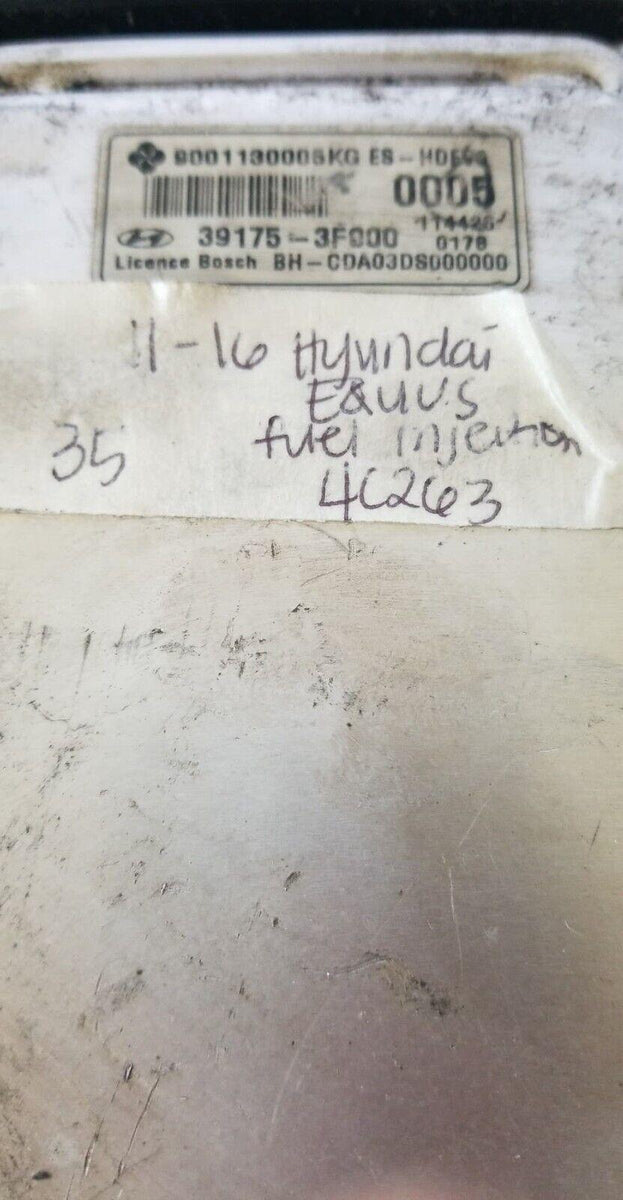 9001130005KG ES-HDEGC
0005
114426
39175-3F000 0178
Licence Bosch BH-CDA03DS000000
11-16 Hyundai
EQUUS
35 fuel injection
4C263